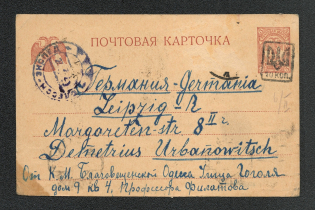 ПОЧТОВАЯ КАРТОЧКА
Германия-Germania
Leipzig-R
Margareten-str 8 II г.
Demetrius Urbanowitsch
От К.М. Благовещенской Одесса Улица Гоголя
дом 9 кв 4. Профессора Филатова